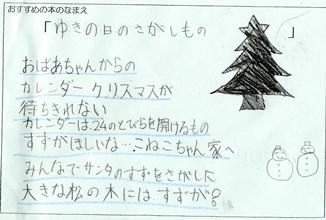 おすすめの本のなまえ
「ゆきの日のさがしもの 」
おばあちゃんからの
カレンダー クリスマスが
待ちきれない
カレンダーは、24のとびらを開けるもの
すずがほしいな…こねこちゃん家へ
みんなでサンタのすずをさがした
大きな松の木には すずが?